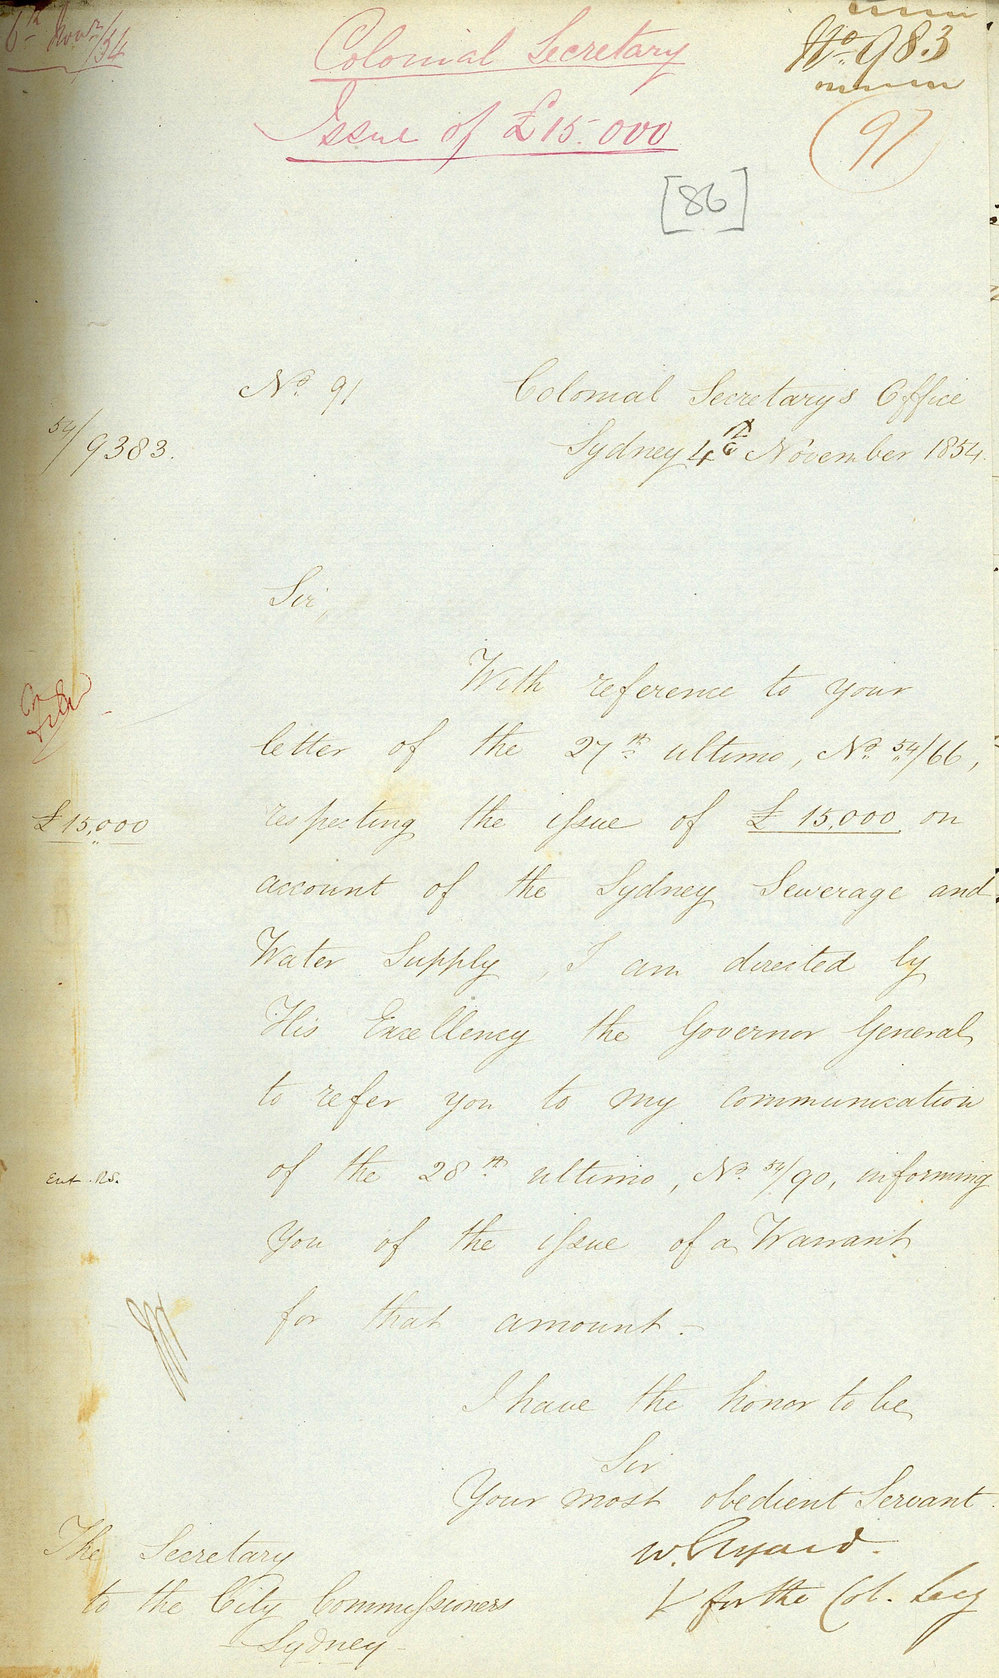 6th Novr/54
Colonial Secretary
No. 983
Issue of £15.000
97
[86]
No. 91
Colonial Secretary's Office
54/9383.
Sydney 4th November 1854.
Sir,
With reference to your
letter of the 27th ultimo, No. 54/66,
£15,000
respecting the issue of £15,000 on
account of the Sydney Sewerage and
Water Supply, I am directed by
His Excellency the Governor General
to refer you to my communication
of the 28th ultimo, No. 54/90, informing
Ent. RS.
you of the issue of a Warrant
for that amount.-
I have the honor to be
Sir
Your most obedient Servant.
W. Elyard.
for the Col. Secy
The Secretary
to the City Commissioners
Sydney